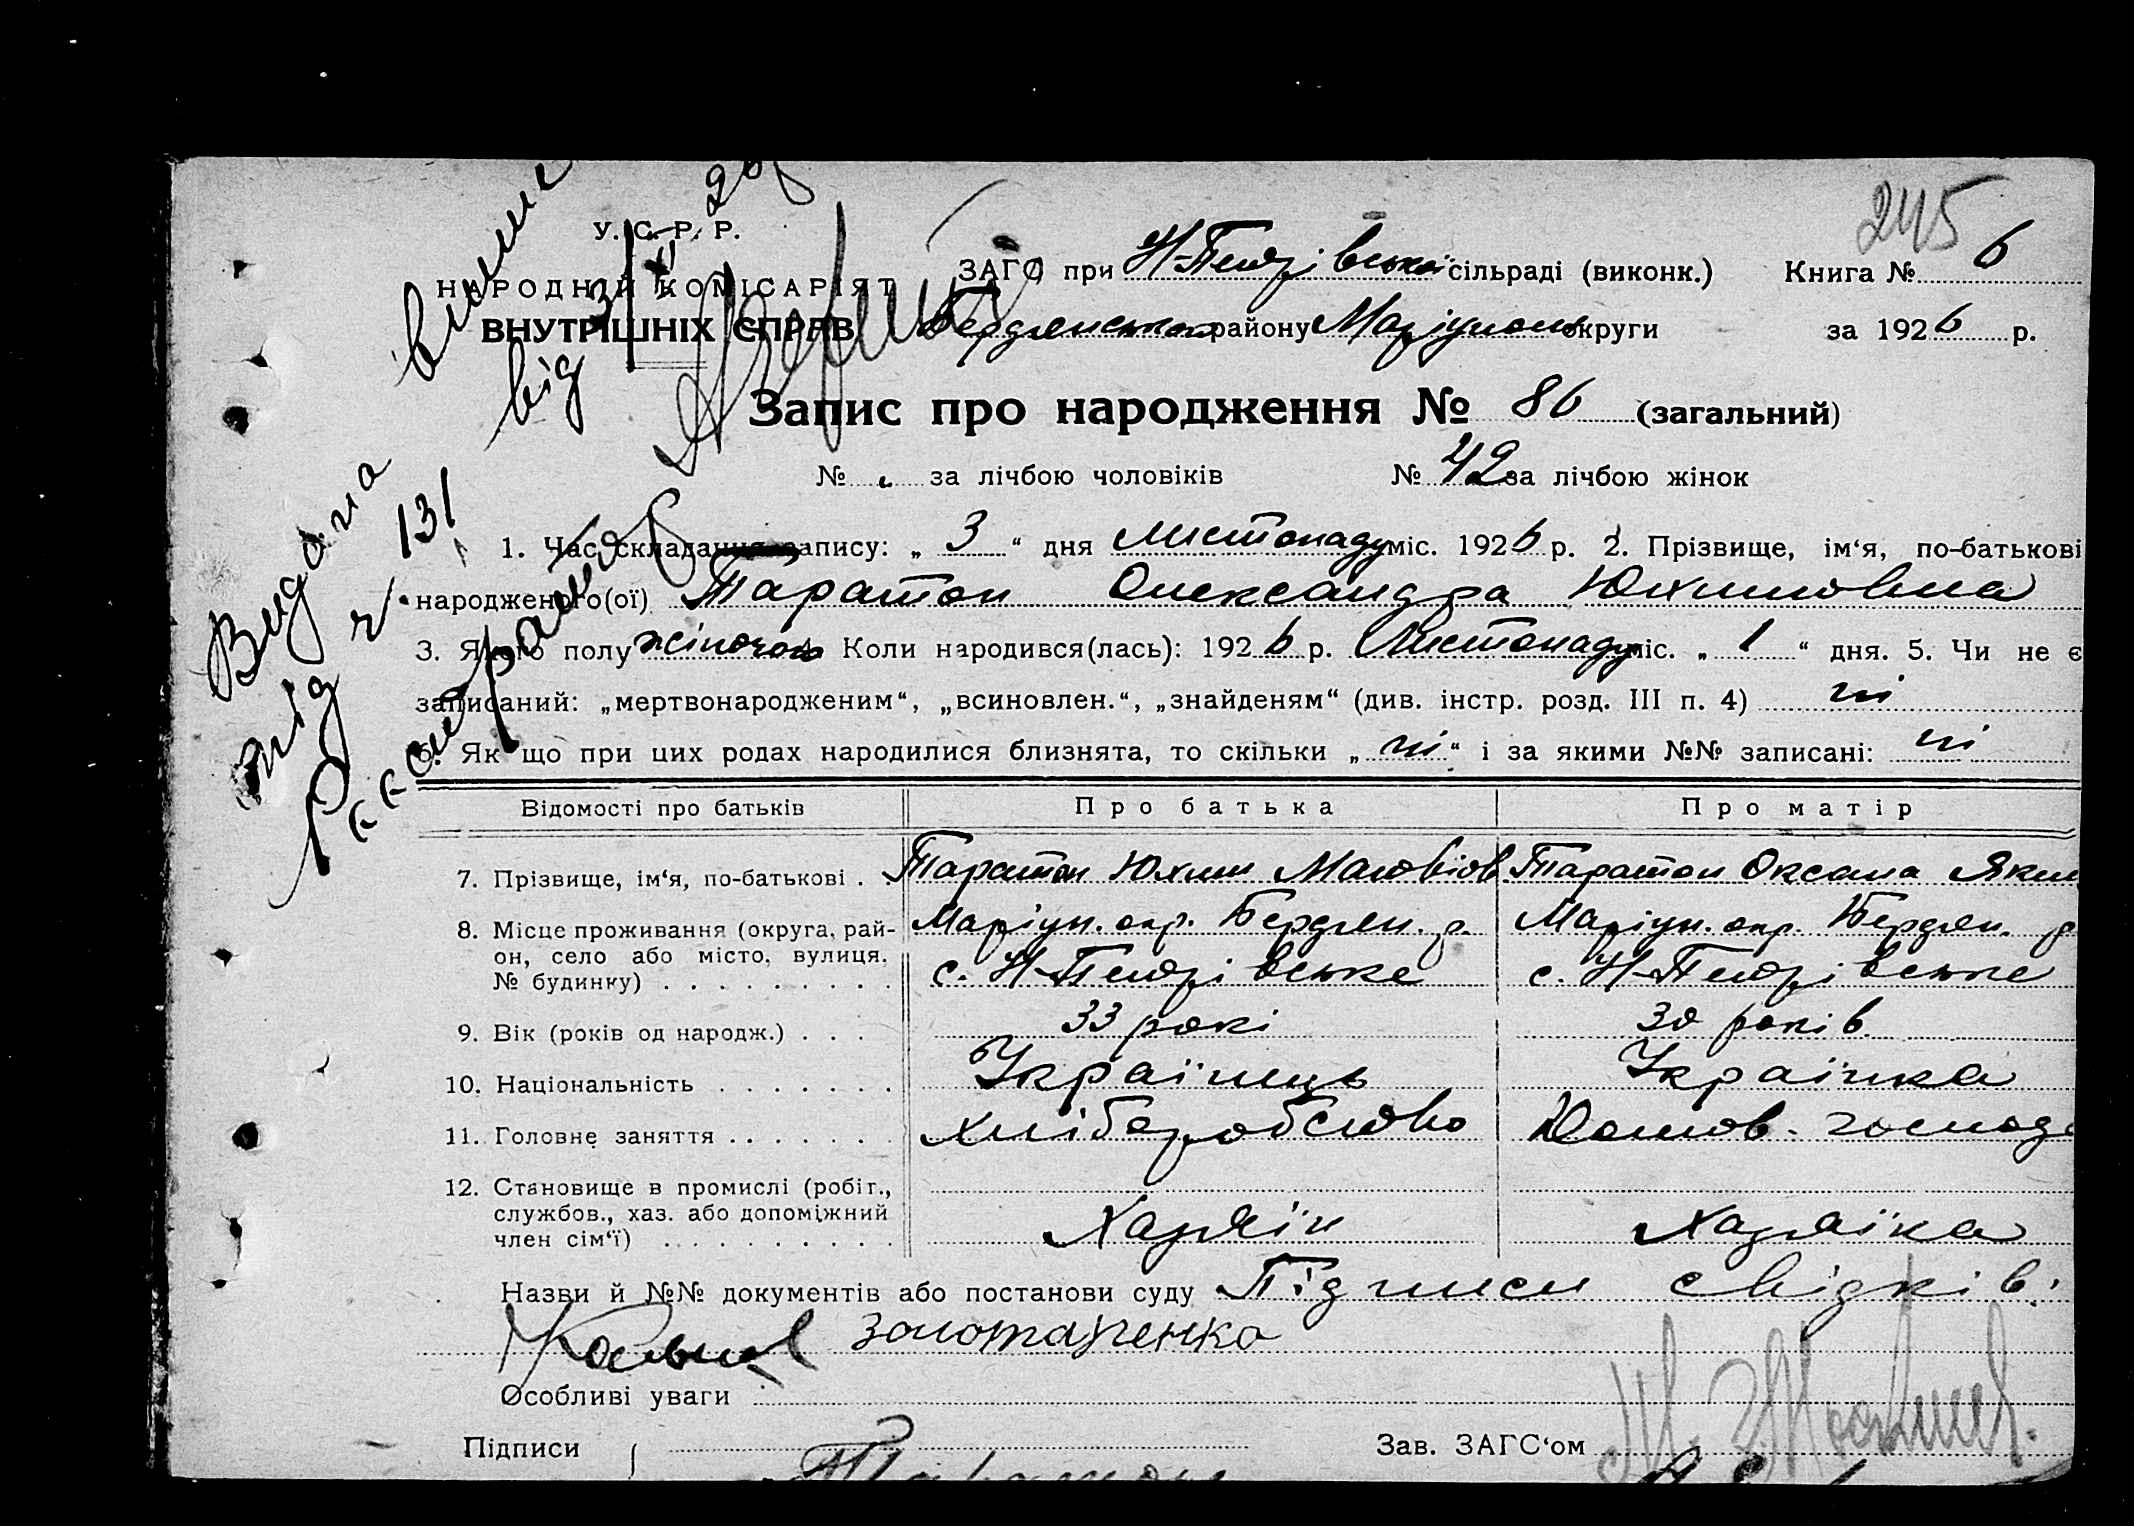 245
У. С. Р. Р.
НАРОДНІЙ КОМІСАРІЯТ
ВНУТРІШНІХ СПРАВ
ЗАГС при Н-Петрівській сільраді (виконк.) Книга № 6
Бердянського району Маріупольс округи за 1926 р.
Запис про народження № 86 (загальний)
№ за лічбою чоловіків № 42 за лічбою жінок
1. Час складання запису: „ 3 “ дня Листопаду міс. 1926 р. 2. Прізвище, ім‘я, по-батькові
народженого(ої) Таратон Олександра Юхимовна
3. Якого полу жіночого 4. Коли народився(лась): 1926 р. Листопаду міс. „ 1 “ дня. 5. Чи не є
записаний: „мертвонародженим“, „всиновлен.“, „знайденям“ (див. інстр. розд. III п. 4) ні
6. Як що при цих родах народилися близнята, то скільки „ ні “ і за якими №№ записані: ні
Відомості про батьків Про батька Про матір
7. Прізвище, ім‘я, по-батькові . . Таратон Юхим Матвіїов Таратон Оксана Яким
8. Місце проживання (округа, рай- Маріуп. окр. Бердян. р. Маріуп. окр. Бердян. р
он, село або місто, вулиця, с. Н-Петрівське с. Н-Петрівське
№ будинку) . . . . . . . . .
9. Вік (років од народж.) . . . 33 рокі 30 років
10. Національність . . . . . . . Українець Українка
11. Головне заняття . . . . . . . Хліборобство Домов. господ
12. Становище в промислі (робіт.,
службов., хаз. або допоміжний Хазяїн Хазяїка
член сім‘ї) . . . . . . . . .
Назви й №№ документів або постанови суду Підписи свідків:
Золотаренко
Особливі уваги
Підписи Зав. ЗАГС‘ом
Таратон
Видана виписк
під ч 131 від 3/XI 26р